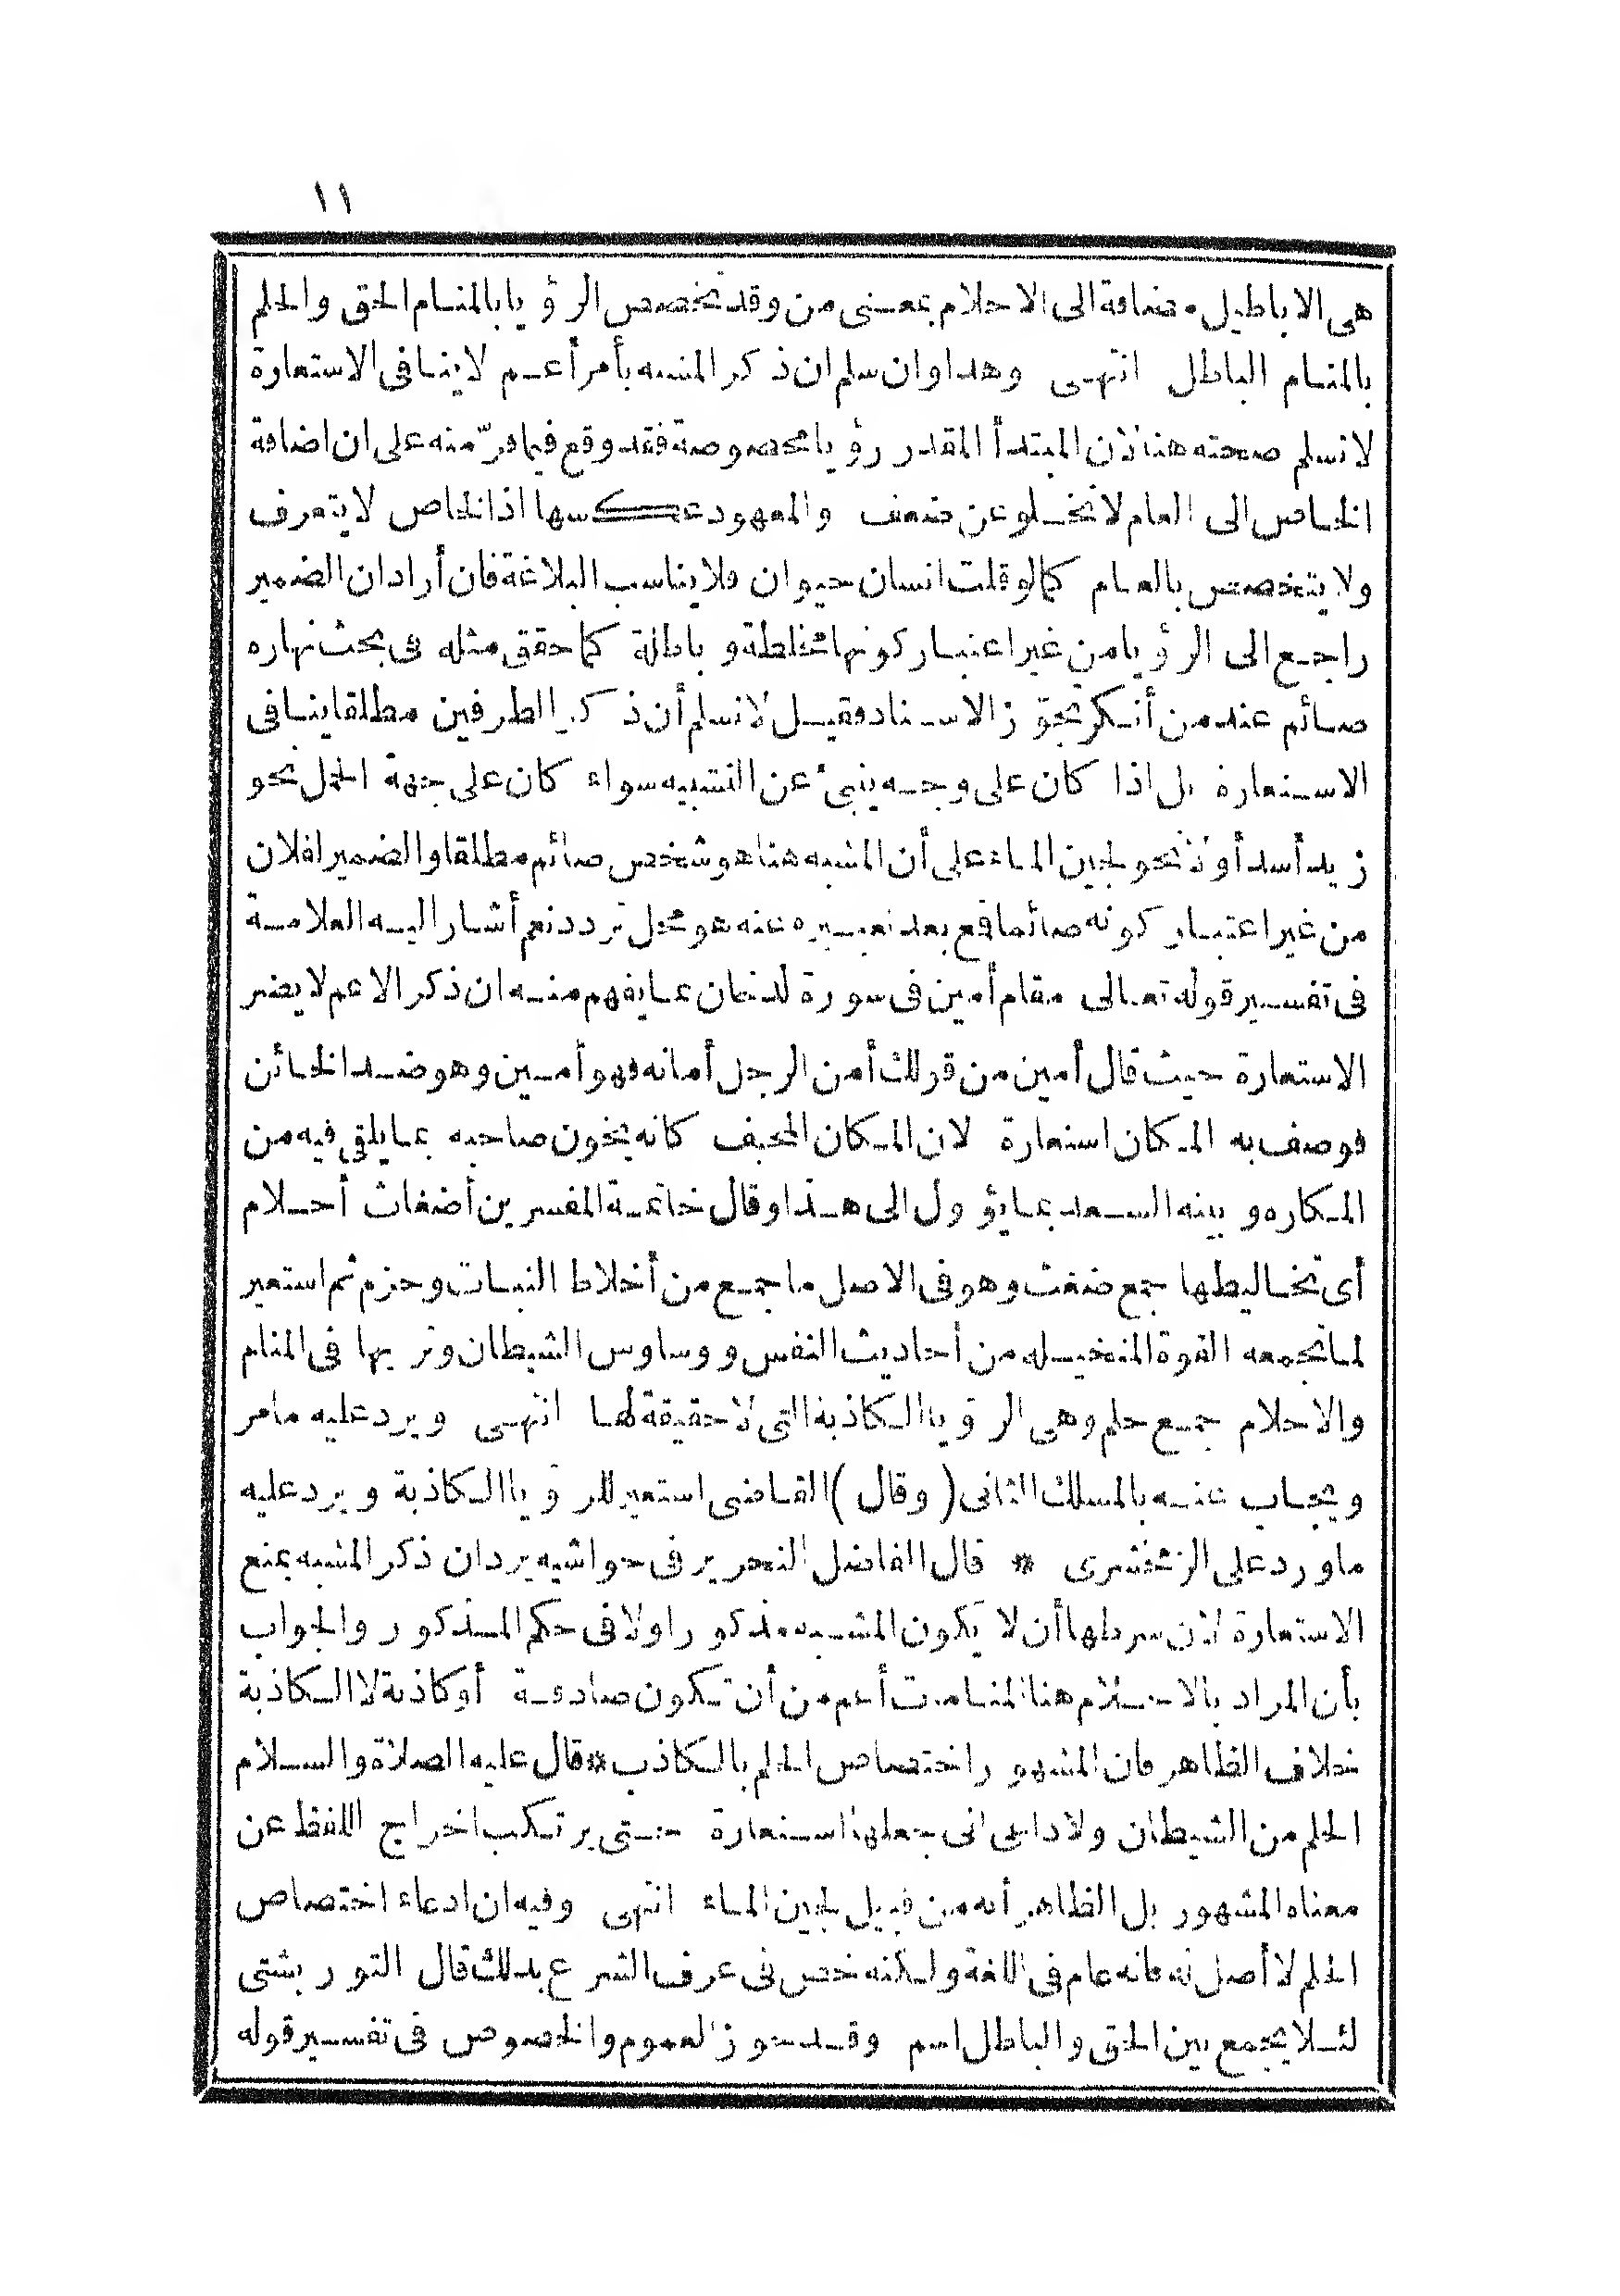 ١١
هى الاباطيل مضافة الى الاحلام بمعنى من وقد تخصص الرؤيا بالمنام الحق والحلم
بالمنام الباطل انتهى وهذا وان سلم ان ذكر المشبه بأمر أعم لا ينافى الاستعارة
لا نسلم صحته هنا لأن المبتدأ المقدر رؤيا مخصوصة فقد وقع فيما فرّ منه على ان اضافة
الخاص الى العام لا تخلو عن ضعف والمعهود عكسها اذ الخاص لا يتعرف
ولا يتخصص بالعام كما لو قلت انسان حيوان فلا يناسب البلاغة فان أراد ان الضمير
راجع الى الرؤيا من غير اعتبار كونها مختلطة و باطلة كما حقق مثله فى بحث نهاره
صائم عند من أنكر تجوّز الاسناد فقيل لا نسلم أن ذكر الطرفين مطلقا ينافى
الاستعارة بل اذا كان على وجه ينبئ عن التشبيه سواء كان على جهة الحمل نحو
زيد أسد أولا نحو لجين الماء على أن المشبه هنا هو شخص صائم مطلقا والضمير لفلان
من غير اعتبار كونه صائما فمع بعد تعبيره عنه هو محل تردد نعم أشار اليه العلامة
فى تفسير قوله تعالى مقام أمين فى سورة الدخان بما يفهم منه ان ذكر الاعم لا يضر
الاستعارة حيث قال أمين من قولك أمن الرجل أمانه فهو أمين وهو ضد الخائن
فوصف به المكان استعارة لان المكان المخيف كانه يخون صاحبه بما يلقى فيه من
المكاره و بينه السعد بما يؤول الى هذا وقال خاتمة المفسرين أضغاث أحلام
أى تخاليطها جمع ضغث وهو فى الاصل ما جمع من أخلاط النبات وحزم ثم استعير
لما تجمعه القوة المتخيله من أحاديث النفس ووساوس الشيطان وتريها فى المنام
والاحلام جمع حلم وهى الرؤيا الكاذبة التى لا حقيقة لها انتهى ويرد عليه مامر
ويجاب عنه بالمسلك الثانى (وقال) القاضى استعير للرؤيا الكاذبة ويرد عليه
ما ورد على الزمخشرى * قال الفاضل النحرير فى حواشيه يرد ان ذكر المشبه يمنع
الاستعارة لان شرطها أن لا يكون المشبه مذكورا ولا فى حكم المذكور والجواب
بأن المراد بالاحلام هنا المنامات أعم من أن تكون صادقة أو كاذبة لا الكاذبة
خلاف الظاهر فان المشهور اختصاص الحلم بالكاذب * قال عليه الصلاة والسلام
الحلم من الشيطان ولا داعى الى جعلها استعارة حتى يرتكب اخراج اللفظ عن
معناه المشهور بل الظاهر أنه من قبيل لجين الماء انتهى وفيه ان ادعاء اختصاص
الحلم لا أصل له فانه عام فى اللغة ولكنه خص فى عرف الشرع بذلك قال التوربشتى
لئلا يجمع بين الحق والباطل اسم وقد جوز العموم والخصوص فى تفسير قوله